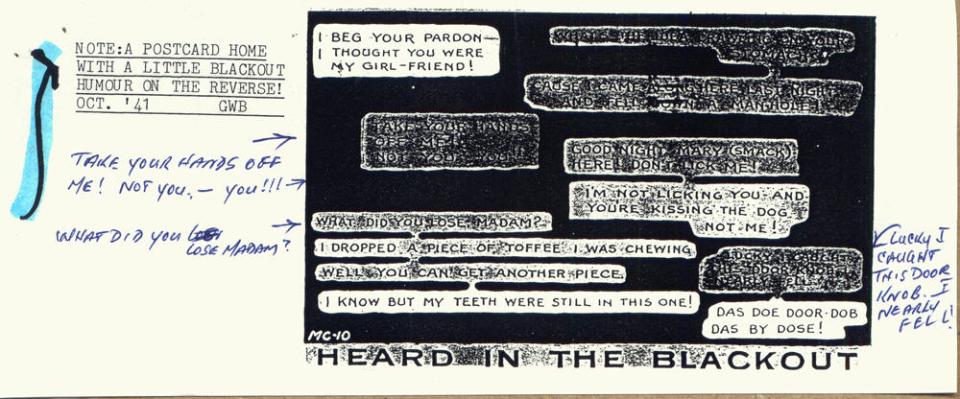 NOTE:A POSTCARD HOME
WITH A LITTLE BLACKOUT
HUMOUR ON THE REVERSE!
OCT. '41 GWB
TAKE YOUR HANDS OFF
ME! NOT YOU. — YOU!!!
WHAT DID YOU
LOSE MADAM?
I BEG YOUR PARDON—
I THOUGHT YOU WERE
MY GIRL-FRIEND!
WHAT'S THE IDEA CRAWLING ON YOUR
STOMACH?
CAUSE I CAME ALONG HERE LAST NIGHT
AND FELL DOWN A MANHOLE!
TAKE YOUR HANDS
OFF ME!
NOT YOU — YOU!!
GOOD NIGHT MARY (SMACK)
HERE! DON'T LICK ME!
I'M NOT LICKING YOU-AND
YOU'RE KISSING THE DOG
NOT ME!
WHAT DID YOU LOSE MADAM?
I DROPPED A PIECE OF TOFFEE I WAS CHEWING
WELL YOU CAN GET ANOTHER PIECE.
I KNOW BUT MY TEETH WERE STILL IN THIS ONE!
LUCKY I CAUGHT
THIS DOOR KNOB
I NEARLY FELL!
DAS DOE DOOR-DOB
DAS BY DOSE!
MC-10
HEARD IN THE BLACKOUT
LUCKY I
CAUGHT
THIS DOOR
KNOB. I
NEARLY
FELL!